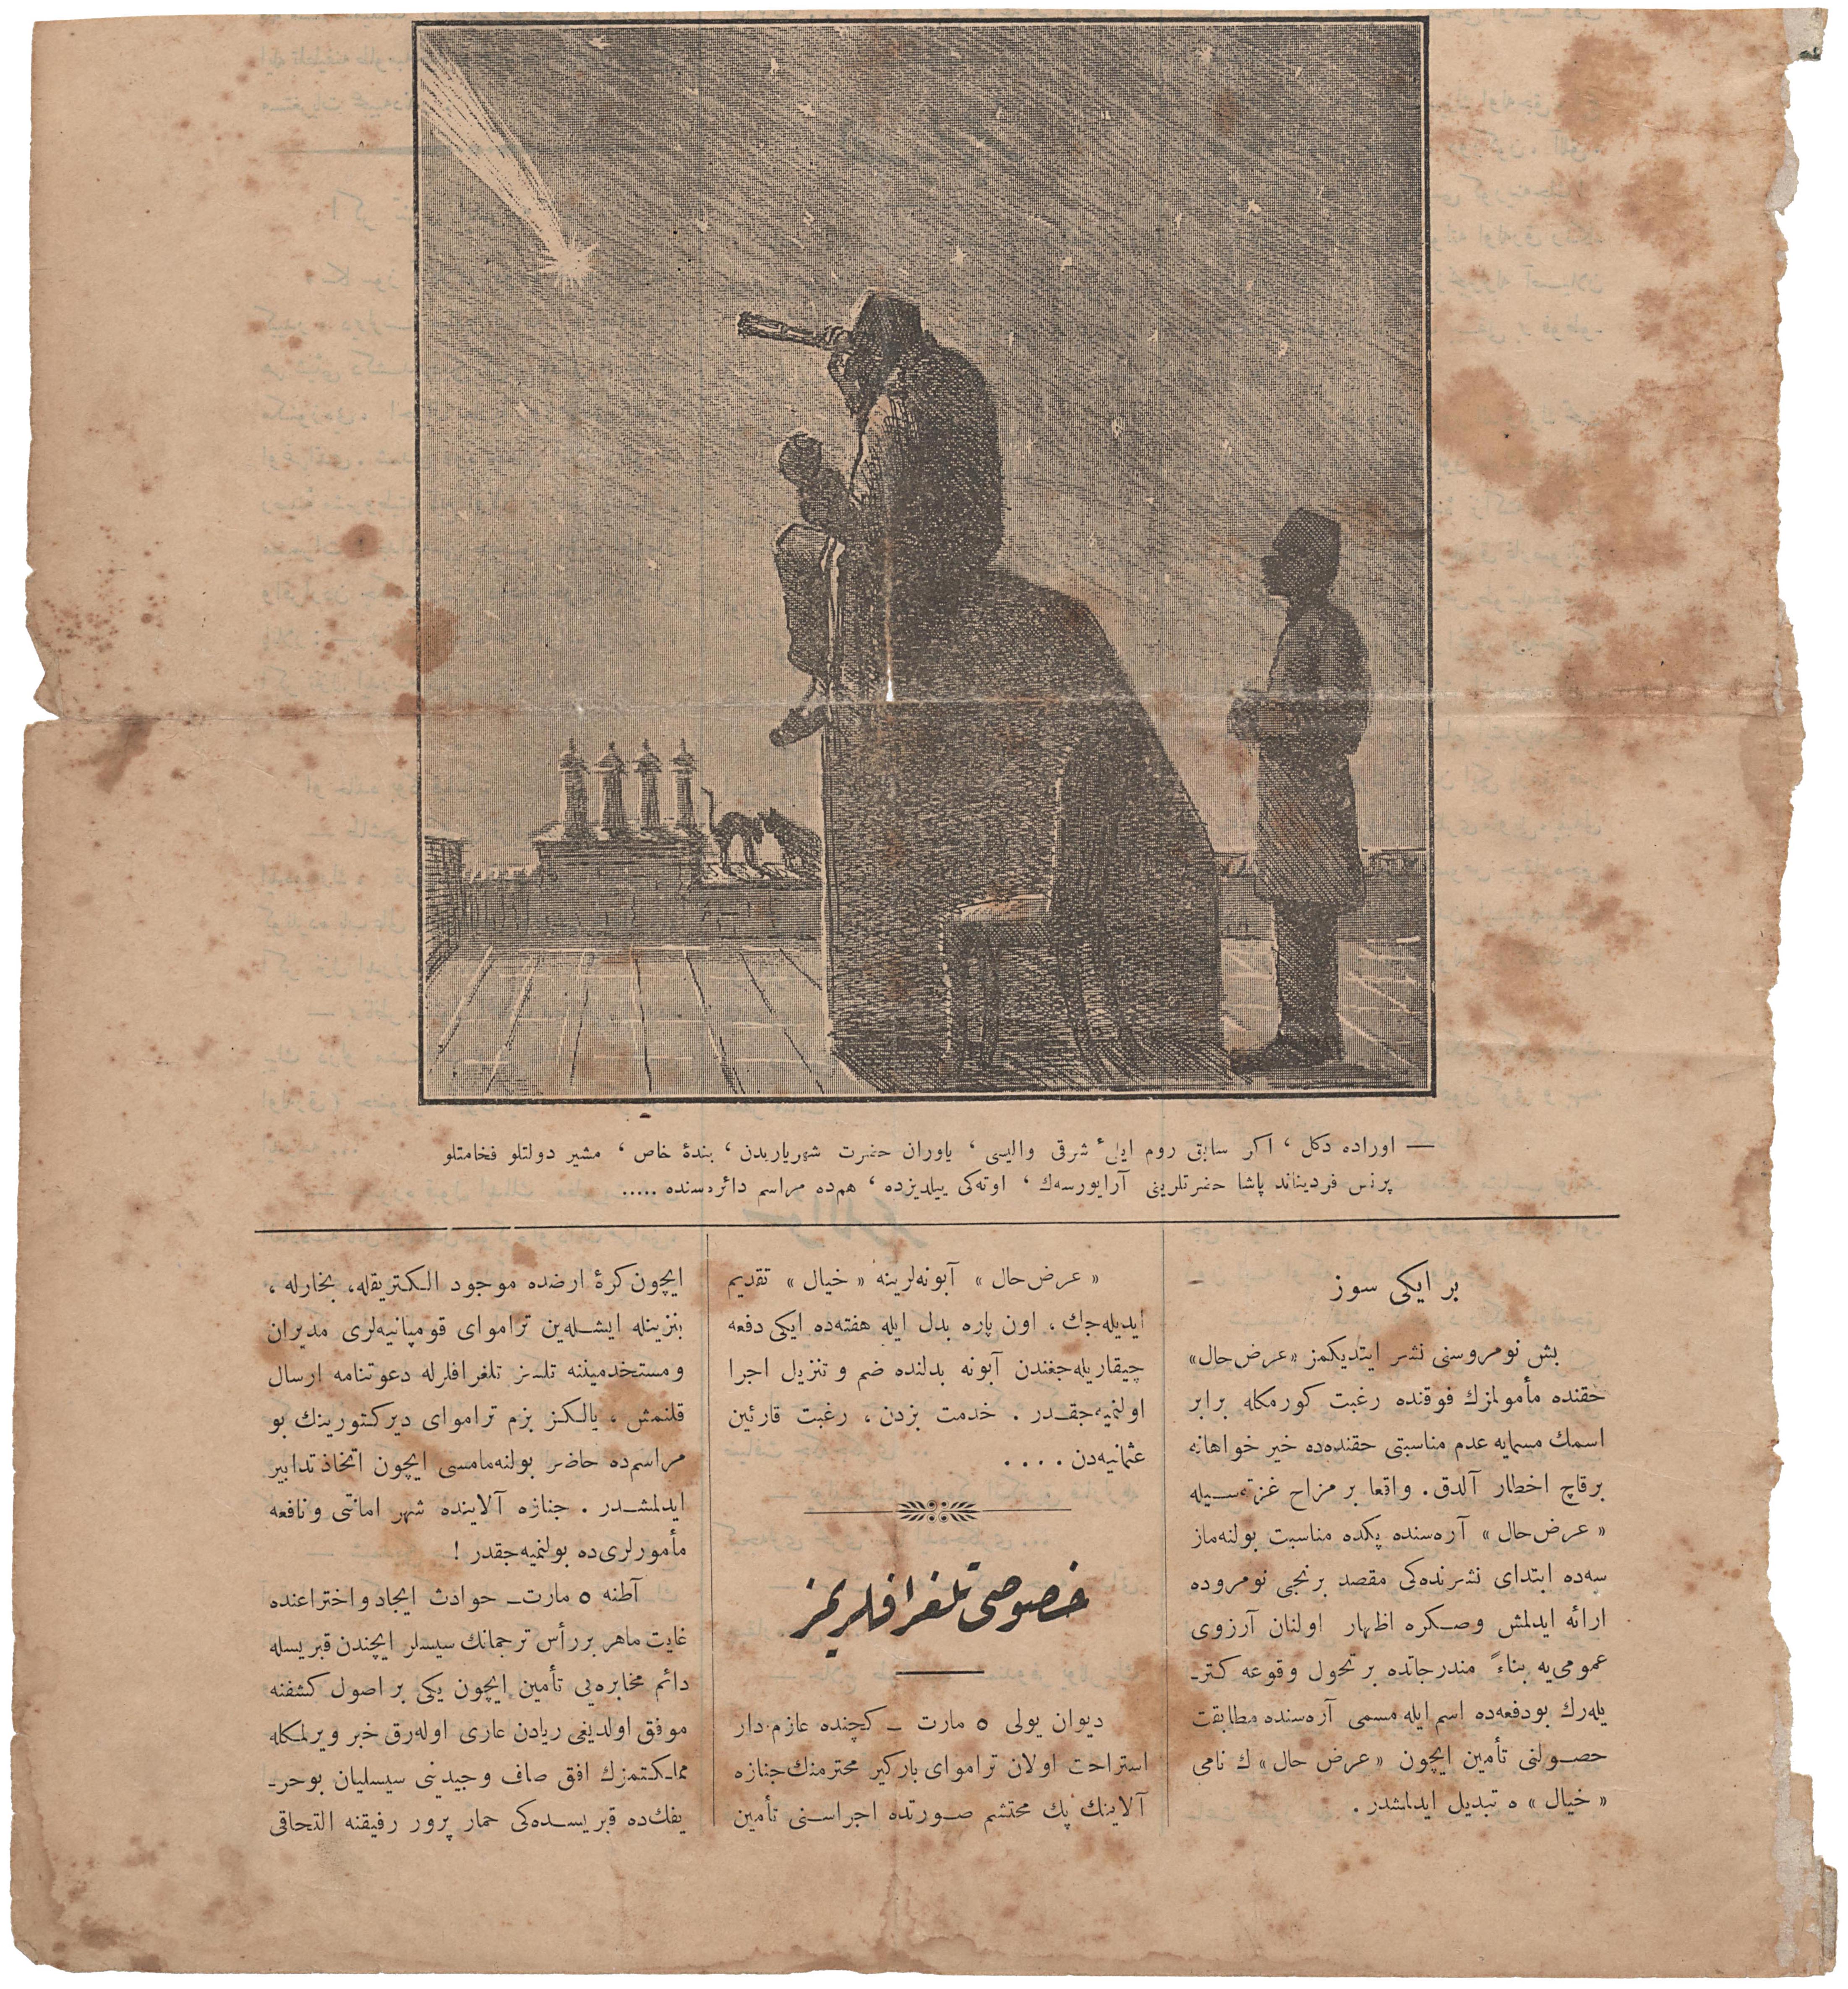 — اوراده دكل ، اكر سابق روم ايلئ شرقى واليسى ، ياوران حضرت شهرياريدن ، بندۀ خاص ، مشير دولتلو فخامتلو
پرنس فرديناند پاشا حضرتلرينى آرايورسه‌ك ، اوته‌كى ييلديزده ، هم‌ده مراسم دائره‌سنده .....
بر ايكى سوز
بش نومروسنى نشر ايتديكمز «عرض حال»
حقنده مأمولمزك فوقنده رغبت كورمكله برابر
اسمك مسمايه عدم مناسبتى حقنده‌ده خير خواهانه
برقاچ اخطار آلدق . واقعا بر مزاح غزته‌سيله
«عرض حال» آره‌سنده پكده مناسبت بولنه‌ماز
سه‌ده ابتداى نشرنده‌كى مقصد برنجى نومروده
ارائه ايدلمش وصكره اظهار اولنان آرزوى
عمومى‌يه بناءً مندرجاتده بر تحول وقوعه كتر-
يله‌رك بودفعه‌ده اسم ايله مسمى آره‌سنده مطابقت
حصولنى تأمين ايچون «عرض حال» ك نامى
«خيال» ه تبديل ايدلمشدر .
«عرض حال» آبونه‌لرينه «خيال» تقديم
ايديله‌جك ، اون پاره بدل ايله هفته‌ده ايكى دفعه
چيقاريله‌جغندن آبونه بدلنده ضم و تنزيل اجرا
اولنميه‌جقدر . خدمت بزدن ، رغبت قارئين
عثمانيه‌دن ....
خصوصى تلغرافلريمز
ديوان يولى ٥ مارت ـ كچنده عازم دار
استراحت اولان تراموای باركير محترمنك جنازه
آلاينك پك محتشم صورتده اجراسنى تأمين
ايچون كرۀ ارضده موجود الكتريقله ، بخارله ،
بنزينله ايشله‌ين تراموای قومپانيه‌لرى مديران
ومستخدميننه تلسز تلغرافلرله دعوتنامه ارسال
قلنمش ، يالكز بزم تراموای ديركتورينك بو
مراسم‌ده حاضر بولنه‌مامسى ايچون اتخاذ تدابير
ايدلمشدر . جنازه آلاينده شهر امانتى ونافعه
مأمورلرى‌ده بولنميه‌جقدر !
آطنه ٥ مارت ـ حوادث ايجاد واختراعنده
غايت ماهر بررأس ترجمانك سيسلر ايچندن قبريسله
دائم مخابره‌يى تأمين ايچون يكى بر اصول كشفنه
موفق اولديغى ريادن عارى اوله‌رق خبر ويرلمكله
مملكتمزك افق صاف وجيدينى سيسليان بوحر-
يفك‌ده قبريسده‌كى حمار پرور رفيقنه التحاقى